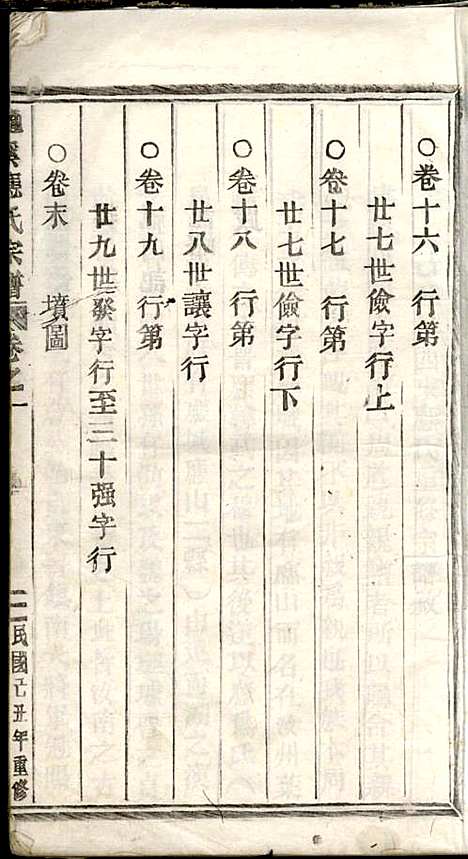 ○卷十六 行第
廿七世儉字行上
○卷十七 行第
廿七世儉字行下
○卷十八 行第
廿八世讓字行
○卷十九 行第
廿九世發字行至三十强字行
○卷末 墳圖
溪應氏宗譜 卷之一
二 民國己丑年重修